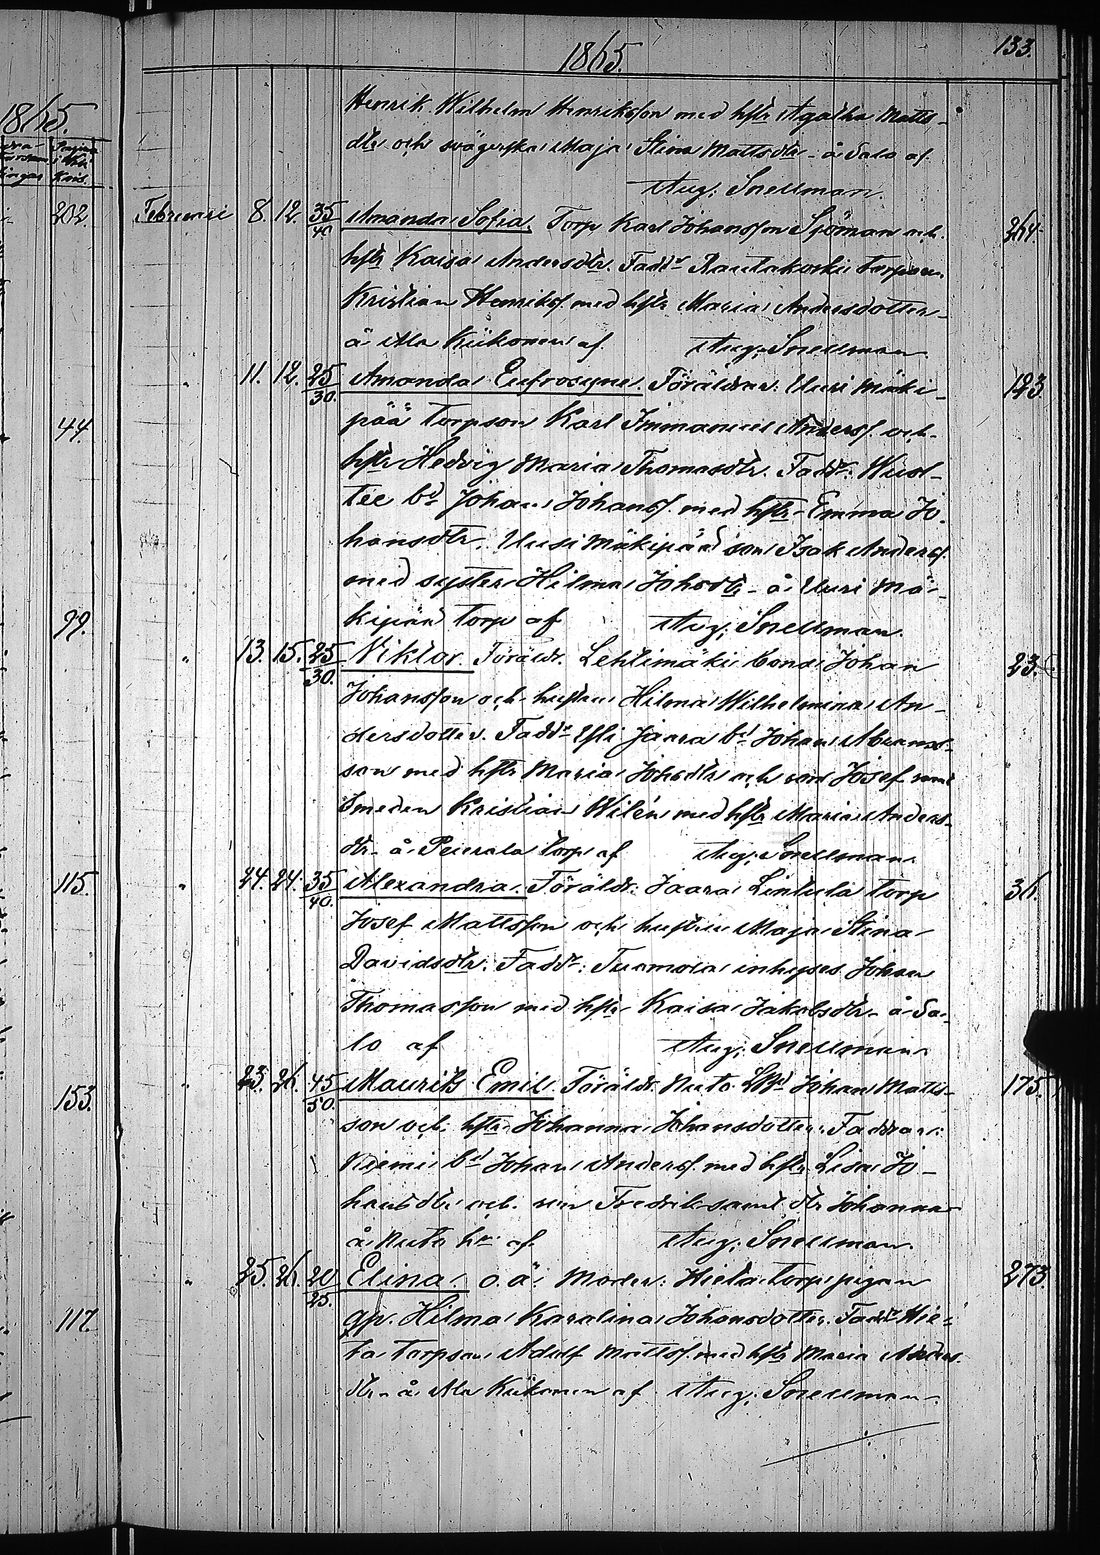 133.
1865.
1865.
Henrik Wilhelm Henriksson med hstr Agatha Matts-
dtr och svägerska Maja Stina Mattsdtr å Salo af
Aug. Snellman.
202. Februari 8. 12. 35/40 Amanda Sofia. Torp Karl Johansson Sjöman och 264.
hstr Kaisa Andersdtr. Faddr Rautakoski torparen
Kristian Henrikss. med hstr Maria Andersdotter
å Ala Kiikonen af Aug. Snellman
" 11. 12. 25/30. Amanda Eufrosyne. Föräldrar: Uusi Mäki- 123.
44.
pää torpson Karl Immanuel Anderss. och
hstr Hedvig Maria Thomasdtr. Faddr: Uusi-
tie bd Johan Johanss. med hstr Emma Jo-
hansdtr. Uusi Mäkipää son Isak Anderss.
med syster Hilma Johsdtr å Uusi Mä-
99.
kipää torp af Aug. Snellman.
" 13. 15. 25/30. Viktor. Föräldr. Lehtimäki bonde Johan 23.
Johansson och hustru Hilma Wilhelmina An-
dersdotter. Faddr Yli Jaara bd Johan
son med hstr Maria Johsdtr och son Josef samt
Smeden Kristian Wilén med hstr Maria Anders-
dtr å Peierala torp af Aug. Snellman.
115. " 24. 24. 35/40. Alexandra. Föräldr: Jaara Lintula torp 36.
Josef Mattsson och hustru Maja Stina
Davidsdtr. Faddr: Tuomola inhyses Johan
Thomasson med hstr Kaisa Jakobsdtr å Sa-
lo af Aug. Snellman
" 23. 26. 45/50. Maurits Emil. Föräldr. Nuto Johan Matts- 175.
153.
son och hstr Johanna Johansdotter. Faddrar:
Niemi bd Johan Anderss. med hstr Lisa Jo-
hansdtr och son Fredrik samt dtr Johanna
å Nuto hn af Aug. Snellman.
" 25. 26. 20/25. Elina o.ä. Moder: Hieta torp pigan 273
117.
gp. Hilma Karolina Johansdotter. Faddr Hie-
ta torpson Adolf Mattss. med hstr Maria Anders-
dtr å Ala Kiikonen af Aug. Snellman